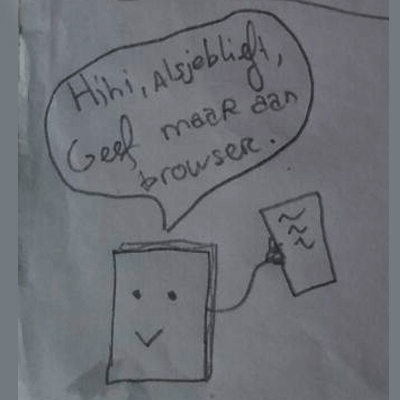 Hihi, Alsjeblieft,
Geef maar aan
browser.